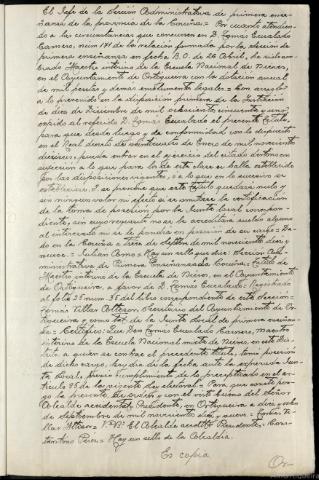 El Jefe de la Sección Administrativa de primera ense-
ñanza de la provincia de la Coruña = Por cuanto atendien-
do a las circunstancias que concurren en D. Tomás Escalado
Carnero, num 171 de la relación formada por la Sección de
primera enseñanza en fecha B.O. de de Abril, ha sido nom-
brado Maestro interino de la Escuela Nacional de Neires,
en el Ayuntamiento de Ortigueira con la dotación anual
de mil pesetas y demas emolumentos legales = Con arreglo
a lo prevenido en la disposición primera de la Instrucción
de diez de Diciembre de mil ochocientos cincuenta y
expido al referido D. Tomás Escalado el presente Título,
para que desde luego y de conformidad con lo dispuesto
en el Real decreto de veintinueve de Enero de mil novecientos
pueda entrar en el ejercicio del citado destino con
sujeción a lo que para los de esta clase se halla establecido
por las disposiciones vigentes, o a lo que en lo sucesivo se
estableciere. Y se previene que este Título quedará nulo y
sin ningun valor ni efecto si se omitiere la certificación
de la toma de posesión por la Junta local correspon-
diente, sin cuyo requisito no se acreditará sueldo alguno
al interesado ni se le pondrá en posesión de su cargo = Da-
do en la Coruña a Tres de Septiembre de mil novecientos diez y
nueve = Julian = Hay un sello que dice: Sección Admi-
nistrativa de Primera Enseñanza de la Coruña = Titulo de
Maestro interino de la Escuela de Neires, en el Ayuntamiento
de Ortigueira, a favor de D. Tomás Escalado = Registrado
al folio 25 num 35 del libro correspondiente de esta Sección =
Tomás Villar, Secretario del Ayuntamiento de Or-
tigueira y como tal de la Junta local de primera enseñan-
za = Certifico: Que Don Tomás Escalado Carnero, maestro
interino de la Escuela Nacional mixta de Neires, en este Dis-
trito, a quien se contrae el precedente Título, tomó posesión
de dicho cargo, hoy dia de la fecha, ante la expresada Jun-
ta local, previo cumplimiento de lo preceptuado en el ar-
tículo 85 de la vigente ley electoral = Para que conste pon-
go la presente de orden y con el visto bueno del Señor
Alcalde accidental, Presidente, en Ortigueira a diez y ocho
de septiembre de mil novecientos diez y nueve = Tomás Vi-
llar = Vº Bº El Alcalde accidtal Presidente, Cons-
tantino = Hay un sello de la Alcaldia.
Es copia